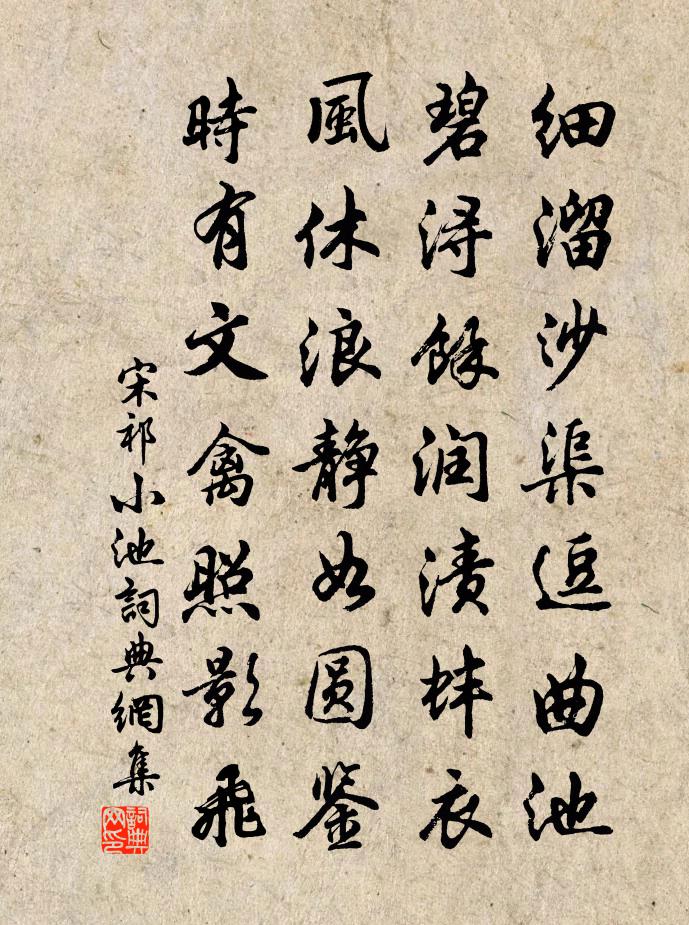 细溜沙渠逗曲池
碧浔馀润渍蚌衣
風休浪静如圆鉴
時有文禽照影飛
宋祁小池詞典網集
詞典网印